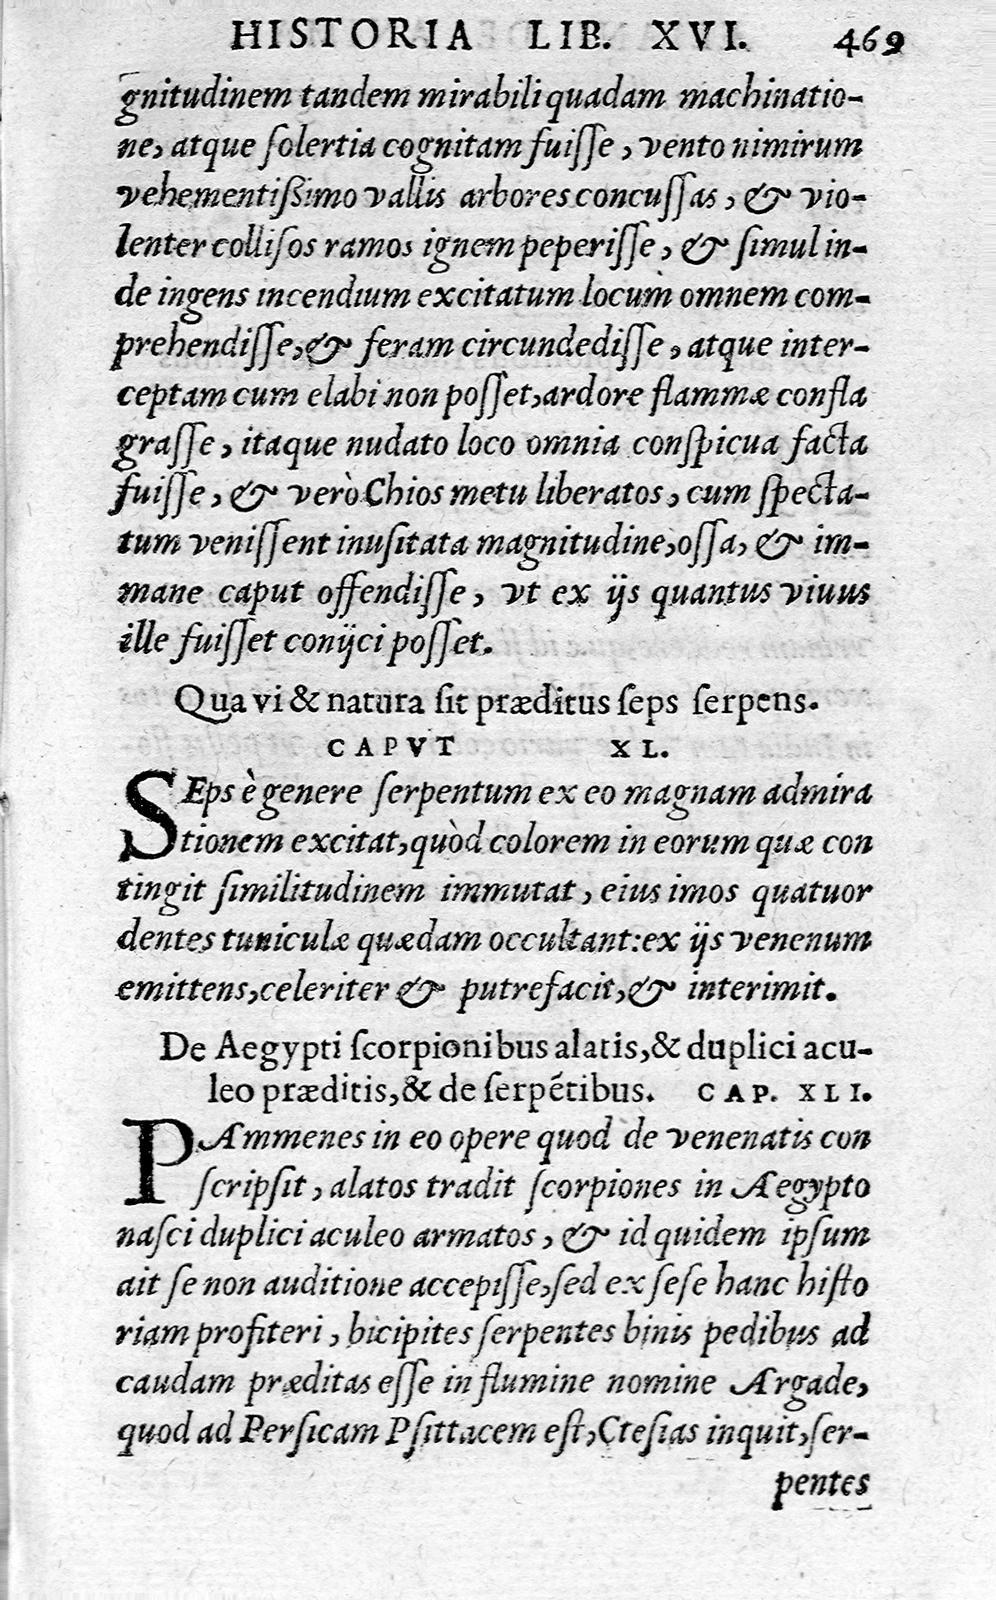 HISTORIA LIB. XVI. 469
gnitudinem tandem mirabili quadam machinatio-
ne, atque ſolertia cognitam fuiſſe, vento nimirum
vehementiſsimo vallis arbores concuſſas, & vio-
lenter colliſos ramos ignem peperiſſe, & ſimul in-
de ingens incendium excitatum locùm omnem com-
prehendiſſe, & feram circundediſſe, atque inter-
ceptam cum elabi non poſſet, ardore flammæ confla
graſſe, itaque nudato loco omnia conſpicua facta
fuiſſe, & verò Chios metu liberatos, cum ſpecta-
tum veniſſent inuſitata magnitudine, oſſa, & im-
mane caput offendiſſe, vt ex ijs quantus viuus
ille fuiſſet conijci poſſet.
Qua vi & natura ſit præditus ſeps ſerpens.
CAPVT XL.
SEps è genere ſerpentum ex eo magnam admira
tionem excitat, quòd colorem in eorum quæ con
tingit ſimilitudinem immutat, eius imos quatuor
dentes tuniculæ quædam occultant: ex ijs venenum
emittens, celeriter & putrefacit, & interimit.
De Aegypti ſcorpionibus alatis, & duplici acu-
leo præditis, & de ſerpẽtibus. CAP. XLI.
PAmmenes in eo opere quod de venenatis con
ſcripſit, alatos tradit ſcorpiones in Ægypto
naſci duplici aculeo armatos, & id quidem ipſum
ait ſe non auditione accepiſſe, ſed ex ſeſe hanc hiſto
riam profiteri, bicipites ſerpentes binis pedibus ad
caudam præditas eſſe in flumine nomine Argade,
quod ad Perſicam Pſittacem eſt, Cteſias inquit, ſer-
pentes